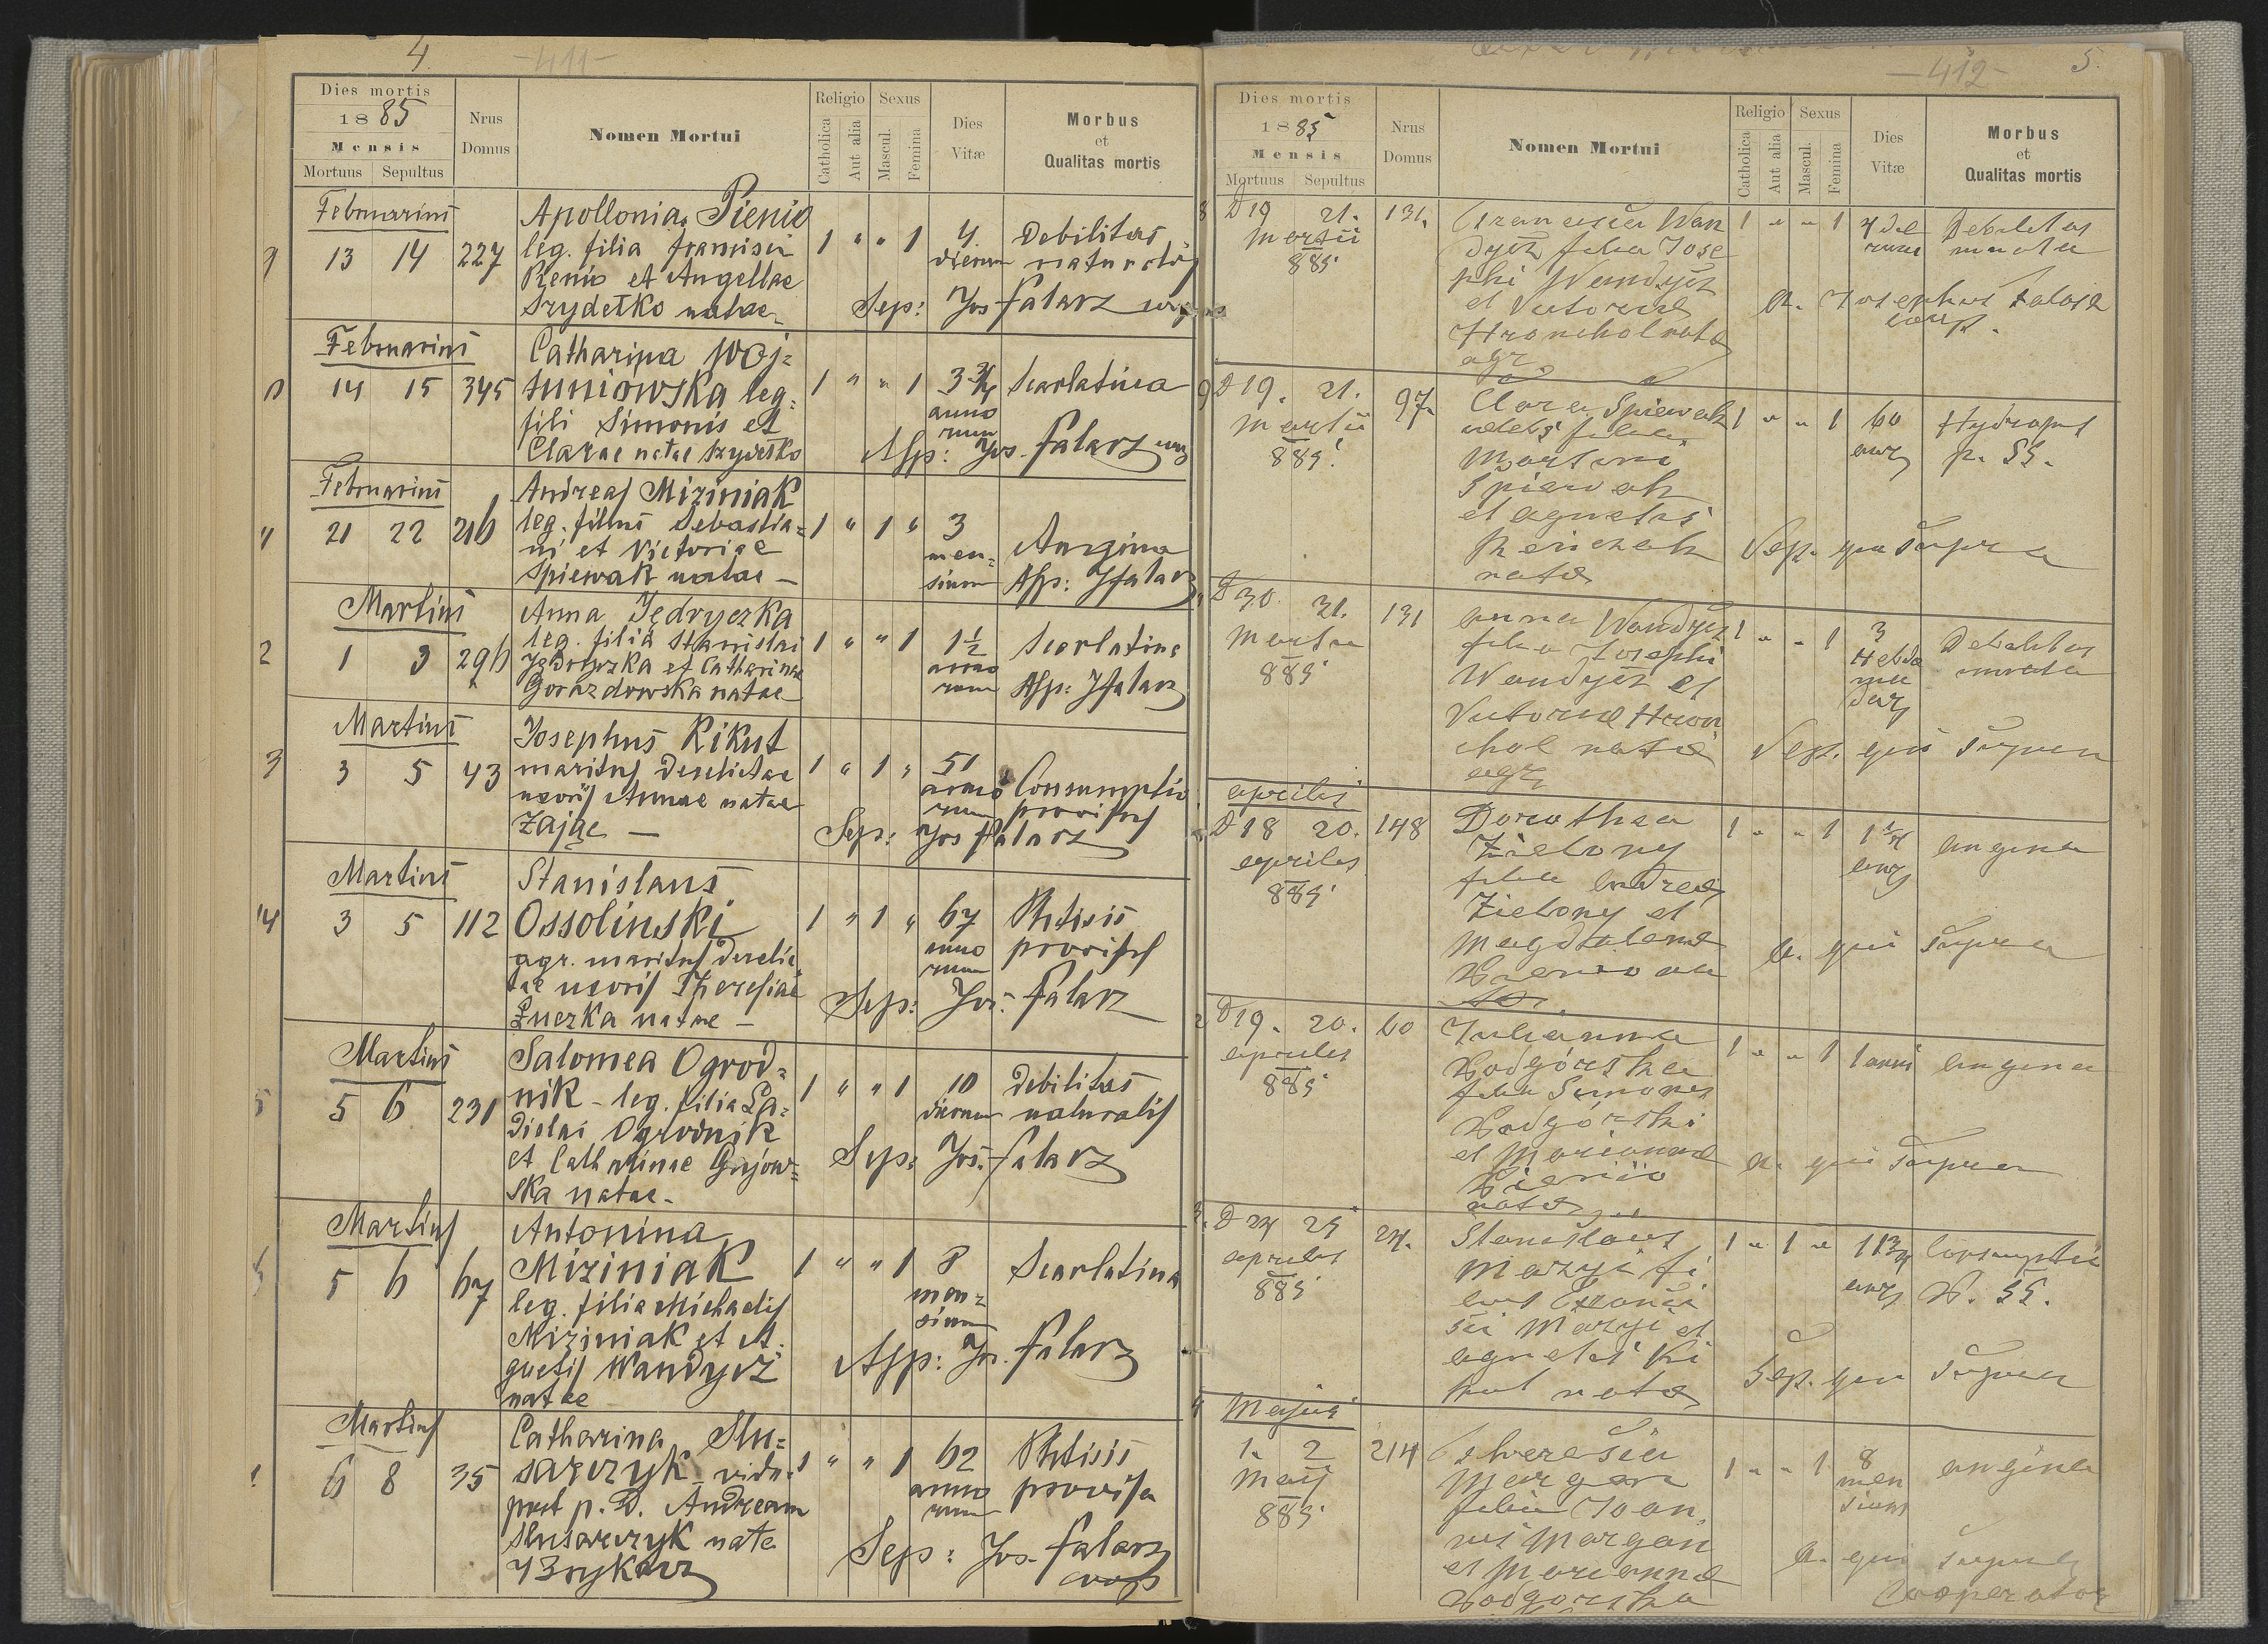 4.
-411-
Dies mortis
1885
Mensis
Mortuus Sepultus
Nrus Domus
Nomen Mortui
Religio
Catholica
Aut alia
Sexus
Mascul.
Femina
Dies Vitæ
Morbus
et
Qualitas mortis
Februarius
13 14 227
Apollonia Pienio
leg. filia Francisci
Pienio et Angellae
Szydełko natae
1 " " 1
4
dierum
Debilitas
naturalis
Sep: Jos Falarz
Februarius
14 15 345
Catharina Woj=
tuniowska leg.
fili Simonis et
Clarae natae Szydełko
1 " " 1
3 3/4
anno
rum
Scarlatina
Asp: Jos. Falarz
11
Februarius
21 22 216
Andreas Miziniak
leg. filius Sebastia=
ni et Victoriae
Spiewak natae —
1 " 1 "
3
men=
sium
Angina
Asp: JFalarz
2
Martius
1 3 296
Anna Jędryczka
leg. filia Stanislai
Jędryczka et Catharinae
Gorazdowska natae
1 " " 1
1 1/2
anno
rum
Scarlatina
Asp: JFalarz
3
Martius
3 5 43
Josephus Kikut
maritus derelictae
uxoris Annae natae
Zając —
1 " 1 "
51
anno
rum
Consumptio
provisus
Sep: Jos Falarz
14
Martius
3 5 112
Stanislaus
Ossolinski
agr. maritus derelic
tae uxoris Theresiae
Łuczka natae —
1 " 1 "
67
anno
rum
Phtisis
provisus
Sep: Jos. Falarz
5
Martius
5 6 231
Salomea Ogrod=
nik - leg. filia La=
dislai Ogrodnik
et Catharinae Gajow=
ska natae -
1 " " 1
10
dierum
Debilitas
naturalis
Sep: Jos. Falarz
Martius
5 6 67
Antonina
Miziniak
leg. filia Michaelis
Miziniak et A=
gnetis Wandycz
natae
1 " " 1
8
men=
sium
Scarlatina
Asp: Jos. Falarz
Martius
6 8 35
Catharina Slu=
sarczyk vidua
post p. D. Andream
Slusarczyk nata
1 " " 1
62
anno
rum
Phtisis
provisa
Sep: Jos. Falarz
coop
-412-
5.
Dies mortis
1885
Mensis
Mortuus Sepultus
Nrus Domus
Nomen Mortui
Religio
Catholica
Aut alia
Sexus
Mascul.
Femina
Dies Vitæ
Morbus
et
Qualitas mortis
8 D 19 21. 131.
Martii
885
Francisca Wan
dycz filia Jose
phi Wandycz
et Victoriae
Hronchol nata
agr.
1 " " 1
Debilitas
innata
a. Josephus Falarz
coop.
9 D 19. 21. 97.
Martii
885.
Clara Spiewak
caelebs filia
Martini
Spiewak
et Agnetis
natae
1 " " 1
60
anor
Hydrops
p. SS.
Sep. qui supra
D 30. 31. 131
Martii
885
Anna Wandycz
filia Josephi
Wandycz et
Victoriae Hron
chol natae
agr
1 " " 1
3
Hebdo
ma
dar
Debilitas
innata
Sep. qui supra
Aprilis
D 18 20. 148
Aprilis
885
Dorothea
Zielony
filia Andreae
Zielony et
Magdalenae
1 " " 1
anor
Angina
a. qui supra
2 D 19. 20. 60
Aprilis
885
Julianna
Podgórska
filia Simonis
Podgórski
et Mariannae
Pienio
natae
1 " " 1
1 anni
Angina
a. qui supra
3. D 24 25 24.
Aprilis
885
Stanislaus
Mazyi fi
lius Franci
sci Mazyi et
Agnetis Ki
kut natae
1 " 1 "
anor
Consumptio
P. SS.
Sep. qui supra
4 Majus
1. 2 214
Maji
885
Theresia
Margan
filia Joan
nis Margan
et Mariannae
Podgorska
1 " " 1
8
men
sium
Angina
a. qui supra
Cooperator